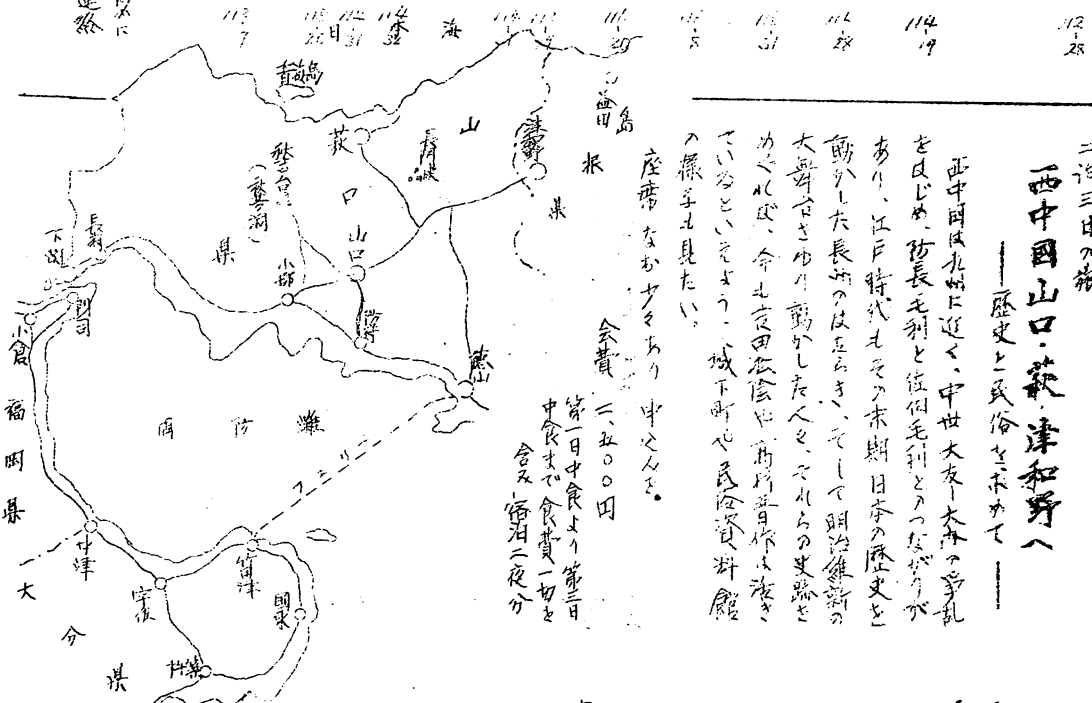 二泊三日の旅
西中國山口・萩・津和野へ
――歴史と民俗を求めて――
西中国は九州に近く、中世大友―大内の争乱
をはじめ、防長毛利と佐伯毛利とのつながりが
あり、江戸時代もその末期日本の歴史を
動かした長州のはたらき、そして明治維新の
大舞台をゆり動かした人々、それらの史蹟を
めぐれば、今も吉田松陰や高杉晋作は活き
ているといえよう、城下町や民俗資料館
の様子も見たい。
座席なお少々あり 申込みを。
会費 二、五〇〇円
第一日中食より第三日
中食まで食費一切を
含み 宿泊二夜分
112-28
114-19
日
海
島
根
県
益田
津和野
山
口
県
青海島
萩
長門峡
秋芳台
(秋芳洞)
山口
小郡
防府
徳山
長府
下関
門司
小倉
福岡県
周防灘
フェリー
中津
宇佐
富津
国東
杵築
大分県